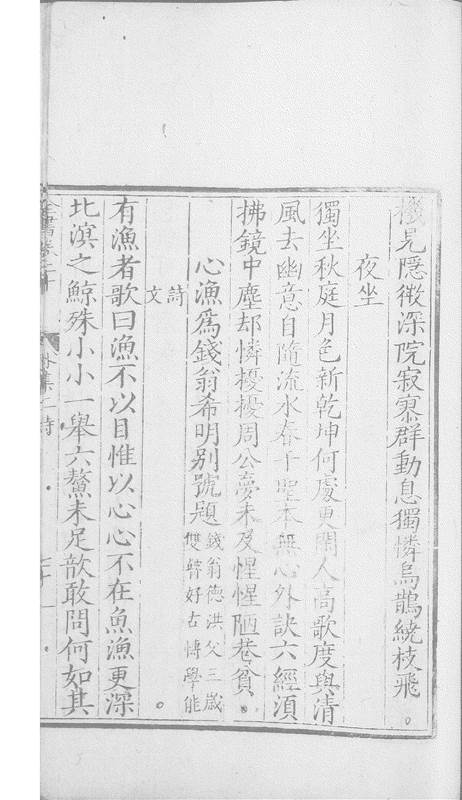 機見隱微深院寂寥群動息獨憐烏鵲繞枝飛
夜坐
獨坐秋庭月色新乾坤何處更閒人高歌度與清
風去幽意自隨流水春千聖本無心外訣六經須
拂鏡中塵却憐擾擾周公夢未及惺惺陋巷貧
心漁爲錢翁希明别號題
錢翁德洪父三歲
雙瞽好古博學能
詩
文
有漁者歌曰漁不以目惟以心心不在魚漁更深
北溟之鯨殊小小一舉六鰲未足歆敢問何如其
全書卷二十
外集 詩